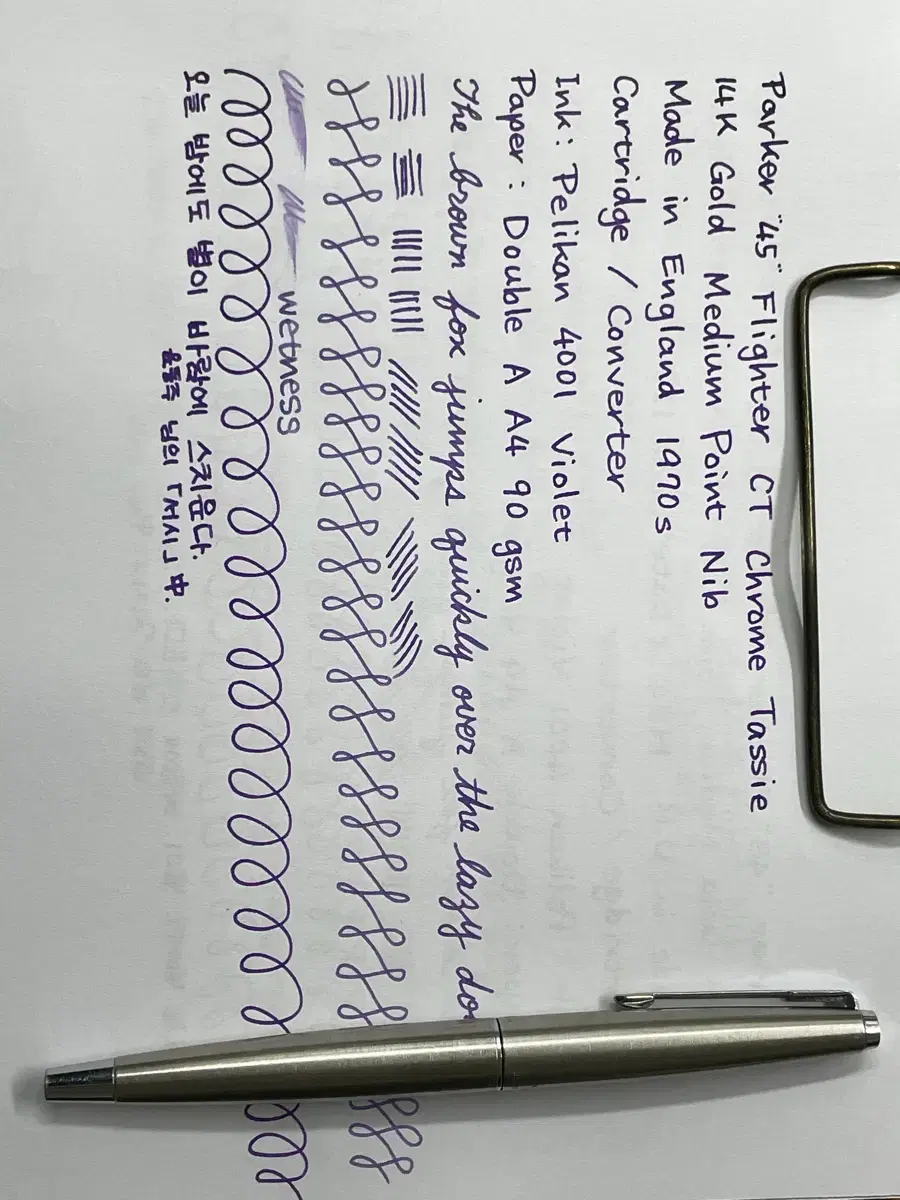 Parker "45" Flighter CT Chrome Tassie
14K Gold Medium Point Nib
Made in England 1970s
Cartridge / Converter
Ink: Pelikan 4001 Violet
Paper: Double A A4 90 gsm
The brown fox jumps quickly over the lazy do
wetness
오늘 밤에도 별이 바람에 스치운다.
윤동주 님의 「서시」 中.